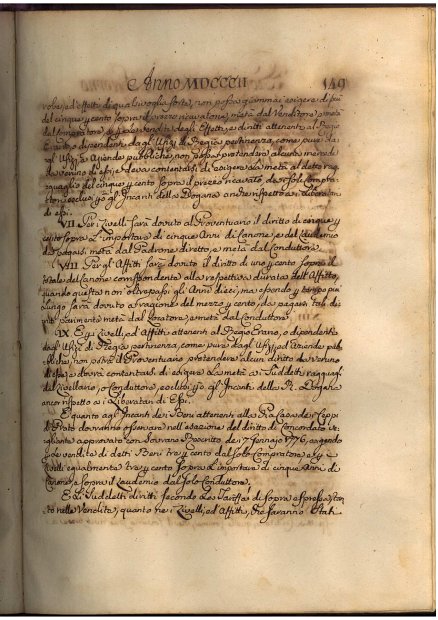 Anno MDCCCII
149
robe, ed effetti di qualsivoglia sorta, non possa giammai esigere di più
del cinque p cento sopra il prezzo ricavatone, metà dal Venditore, e metà
dal Compratore, e per le vendite degli Effetti, e diritti attenenti al Regio
Erario, o dipendenti dagli Ufizj di Regia pertinenza, come pure da
gli Ufizj, e Aziende pubbliche, non possa pretendere alcuna mercede
da veruno di essi, e deva contentarsi di esigere la metà al detto rag
guaglio del cinque p cento sopra il prezzo ricavato dal solo Compra
tore, esclusi gli Incanti della Dogana anche rispetto ai Liberatari
di essi.
VII Per i Livelli sarà dovuto al Proventuario il diritto di cinque p
cento sopra l'importare di cinque Anni di Canone, e del Laudemio
da pagarsi metà dal Padrone diretto, e metà dal Conduttore.
VIII Per gli Affitti sarà dovuto il diritto di uno p cento sopra il
totale del Canone corrispondente alla respettiva durata dell'Affitto,
quando questa non oltrepassi gli Anni dieci, ma essendo p tempo più
lungo sarà dovuto a ragione del mezzo p cento, da pagarsi tali di
ritti parimente metà dal Locatore, e metà dal Conduttore.
IX E p i Livelli, ed Affitti attenenti al Regio Erario, o dipendenti
dagli Ufizj di Regia pertinenza, come pure dagli Ufizj, ed Aziende pub
bliche, non potrà il Proventuario pretendere alcun diritto da veruno
di essi, e dovrà contentarsi di esigere la metà ai suddetti ragguagli
dal Livellario, o Conduttore, esclusi p gli Incanti della R. Dogana
anco rispetto ai Liberatari di Essi.
E quanto agli Incanti dei Beni attenenti alla Pia Casa dei Ceppi
di Prato dovranno osservare nell'esazione del diritto di Concordato Vi
gliante approvato con Sovrano Rescritto de' 7 Gennajo 1776, esigendo
p le vendite di detti Beni tre p cento dal solo Compratore, e p i
Livelli egualmente tre p cento sopra l'importare di cinque Anni di
Canone, e sopra il Laudemio dal solo Conduttore.
E li suddetti diritti secondo la Tariffa di sopra espressa, tan
to nelle Vendite, quanto nei Livelli, ed Affitti, che saranno stati